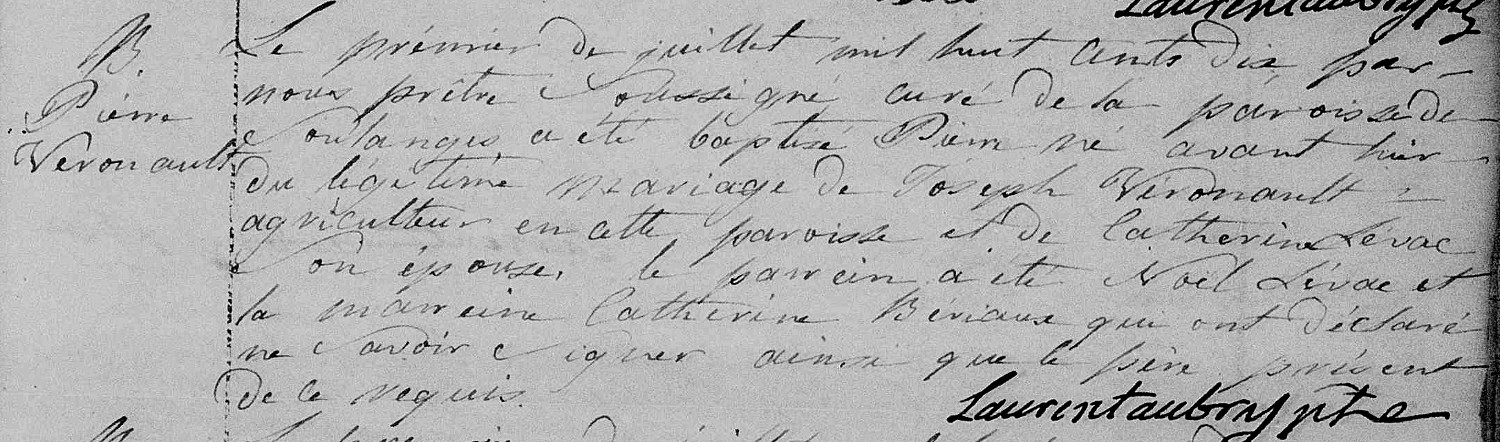 Laurentaubryptre
B.
Piérre
Veronault
Le prémier de juillet mil huit cents dix par
nous prêtre Soussigné curé de la paroisse de
Soulanges a été baptisé Pierre né avant hier
du légitime mariage de Joseph Véronault
agriculteur en cette paroisse et de Catherine Lévac
Son épouse, le parrein a été Noël Lévac et
la marreine Catherine Bériaux qui ont déclaré
ne Savoir Signer ainsi que le père présent
de ce requis.
Laurentaubryptre